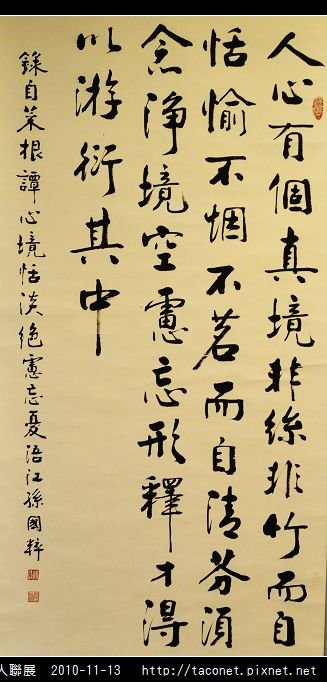 人心有個真境非絲非竹而自
恬愉不烟不茗而自清芬須
念淨境空慮忘形釋才得
以游衍其中
錄自菜根譚心境恬淡絕慮忘憂 浯江孫國粹
人聯展 2010-11-13 http://taconet.pixnet.net